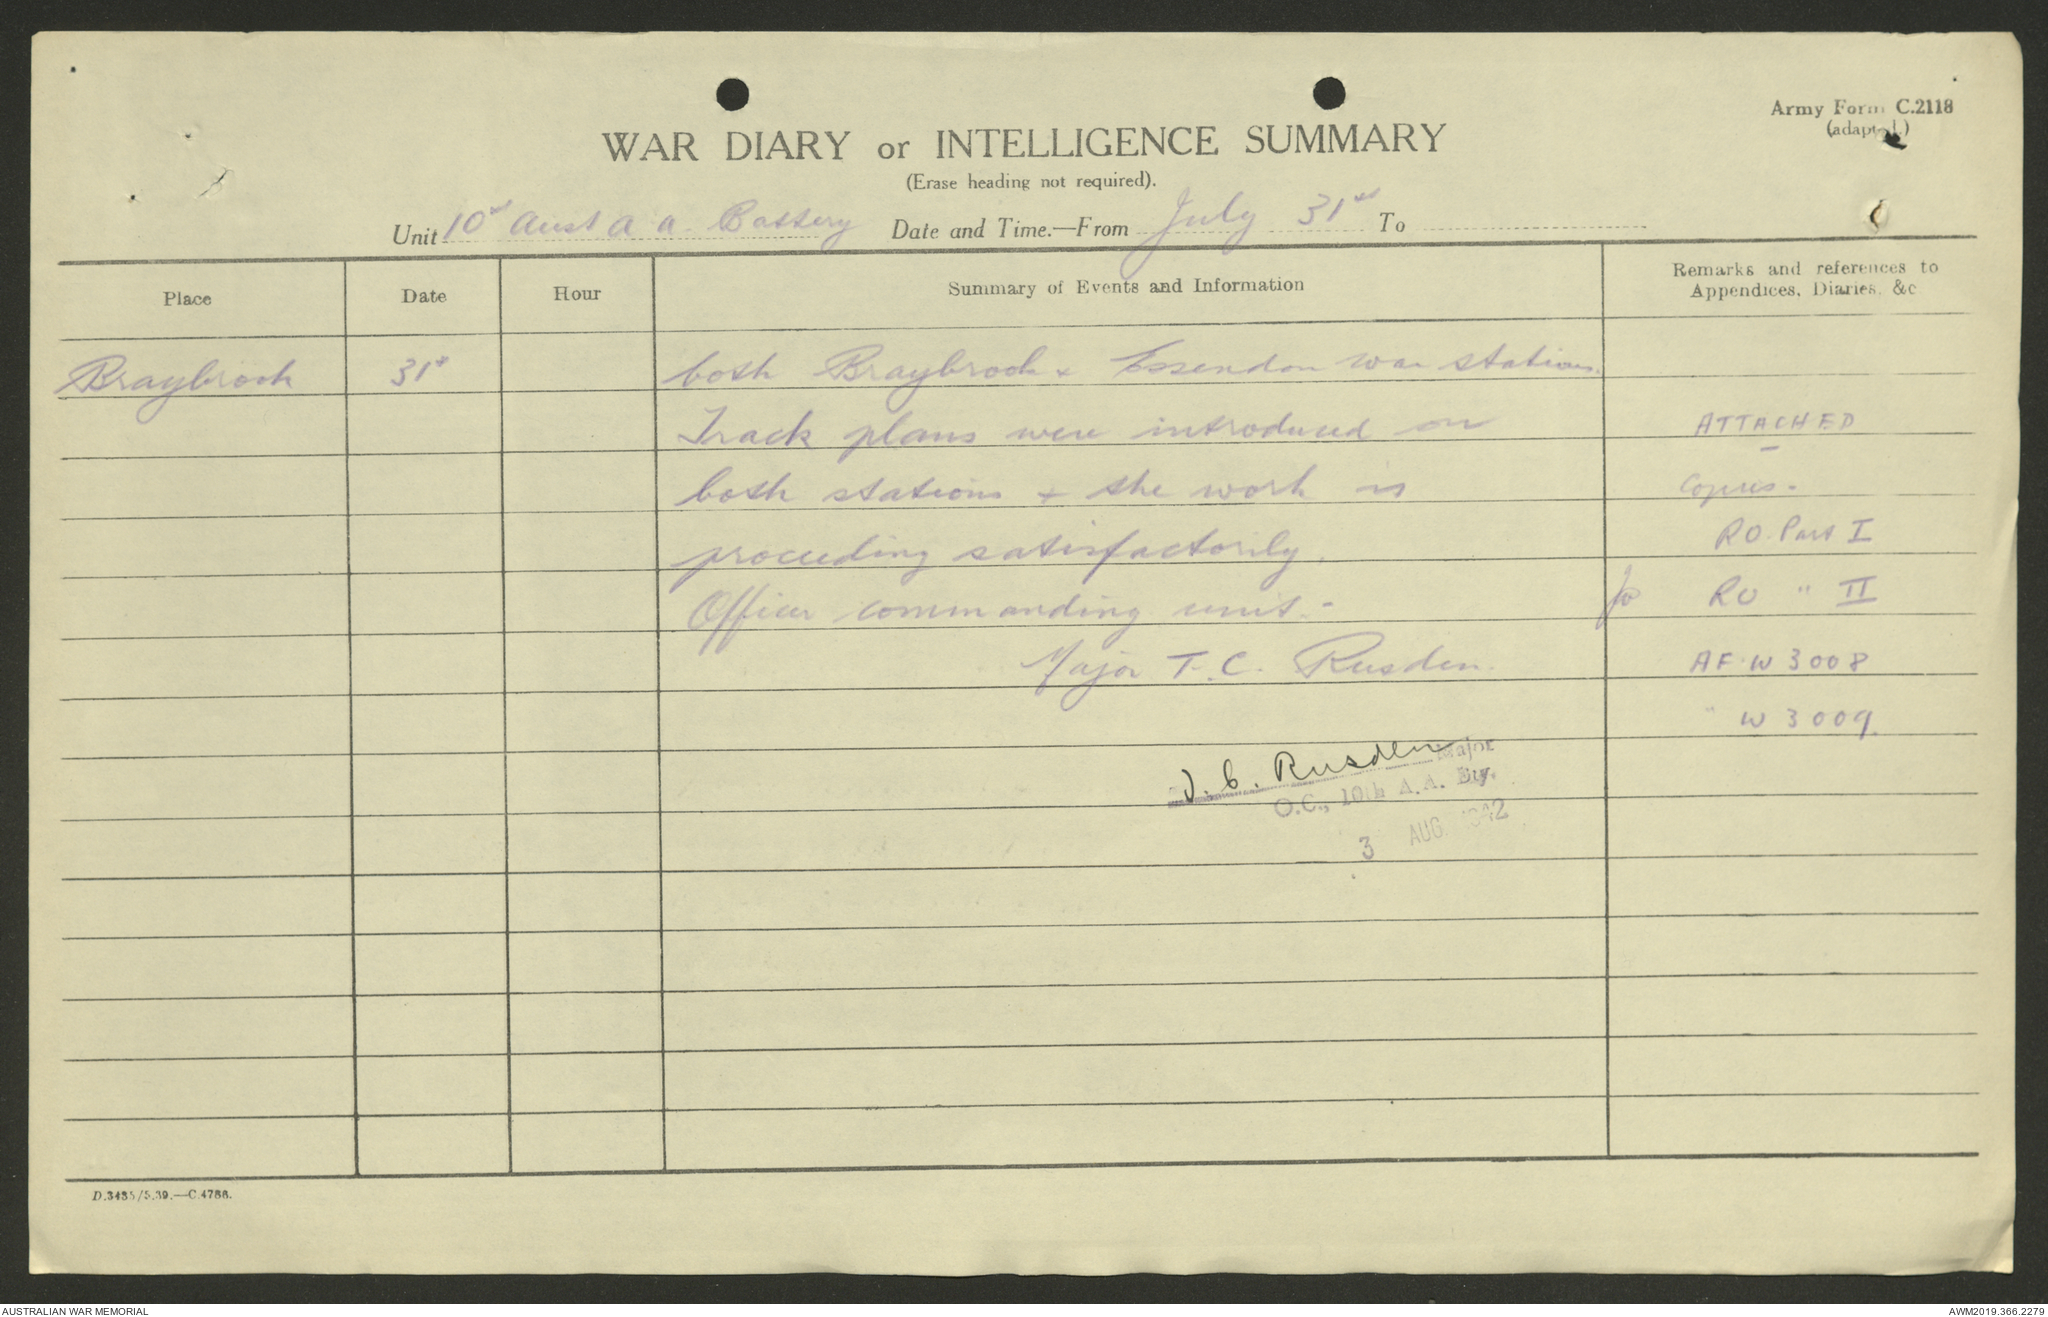 Army Form C.2118
(adapted.)
WAR DIARY or INTELLIGENCE SUMMARY
(Erase heading not required).
Unit 10th Aust A A Battery Date and Time.—From July 31st To
Place Date Hour Summary of Events and Information Remarks and references to
Appendices, Diaries, &c
Braybrook 31st both Braybrook & Essendon war stations.
Track plans were introduced on ATTACHED
both stations & the work is Copies -
proceeding satisfactorily. RO. Part I
Officer commanding unit. - RO " II
Major T. C. Rusden. AF. W 3008
" W 3009.
T. C. Rusden Major
O.C., 10th A.A. Bty.
3 AUG 1942
D.3485/5.39.—C.4786.
AUSTRALIAN WAR MEMORIAL AWM2019.366.2279